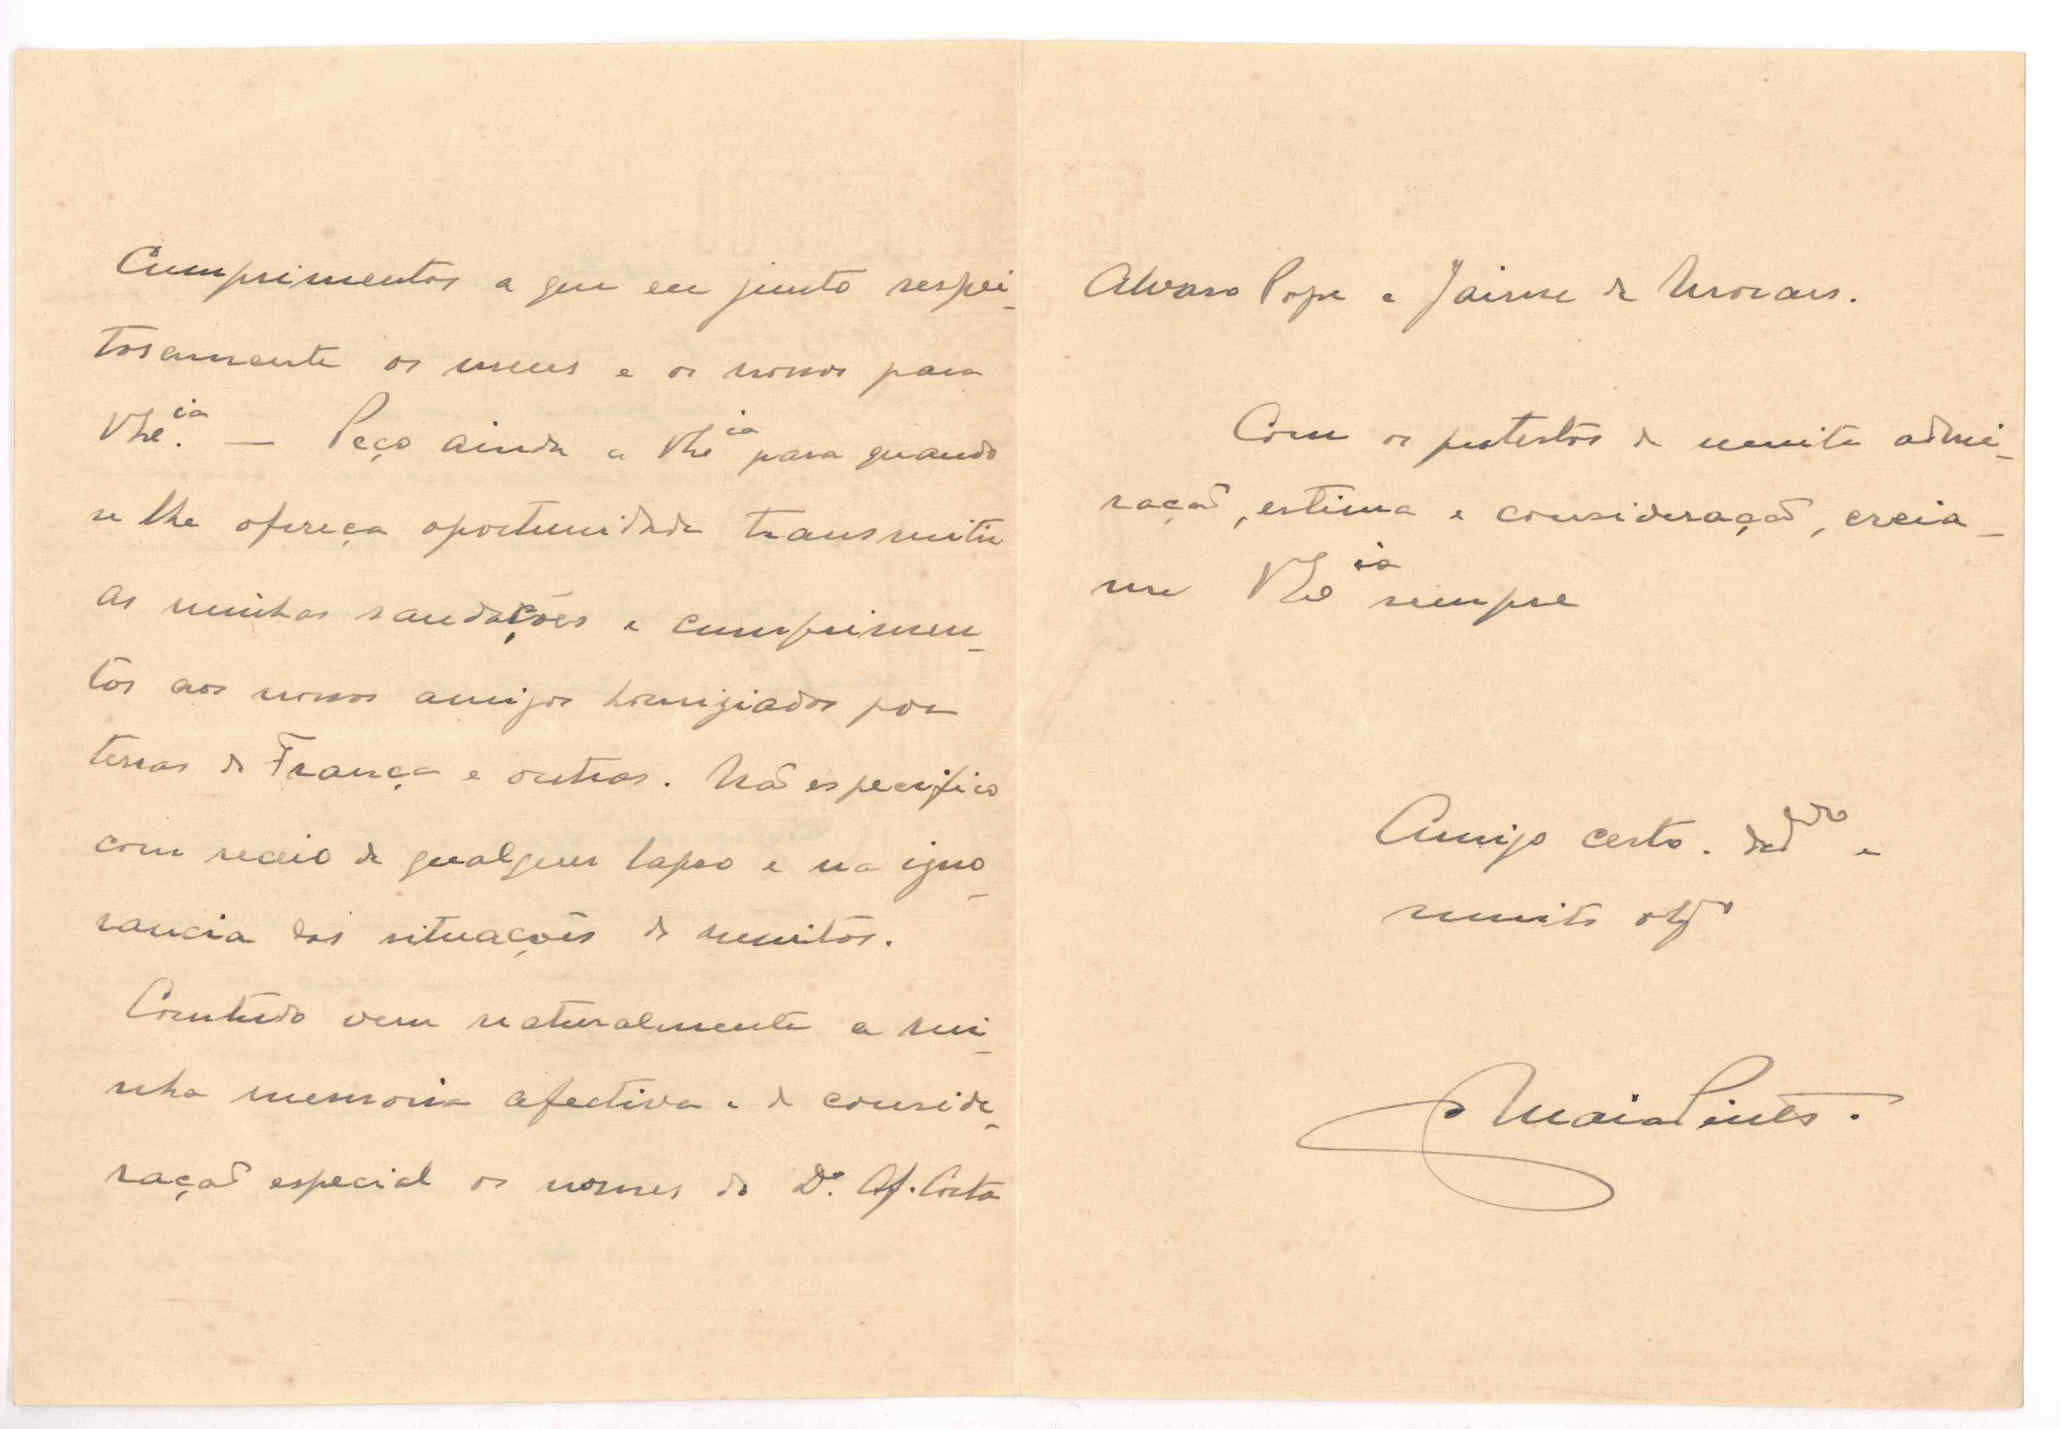 Cumprimentos a que eu junto respei-
tosamente os meus e os nossos para
V. Ex.cia — Peço ainda a V. Ex.cia para quando
se lhe ofereça oportunidade transmitir
as minhas saudações e cumprimen-
tos aos nossos amigos homiziados por
terras de França e outras. Não especifico
com receio de qualquer lapso e na igno-
rancia das situações de muitos.
Comtudo vem naturalmente a mi-
nha memoria afectiva e de conside-
ração especial os nomes do Dr. Af. Costa
Alvaro Pope e Jaime de Morais.
Com os protestos de muita admi-
ração, estima e consideração, creia-
me V. Ex.cia sempre
Amigo certo. dedicdo e
muito obgdo
Maia Pinto.